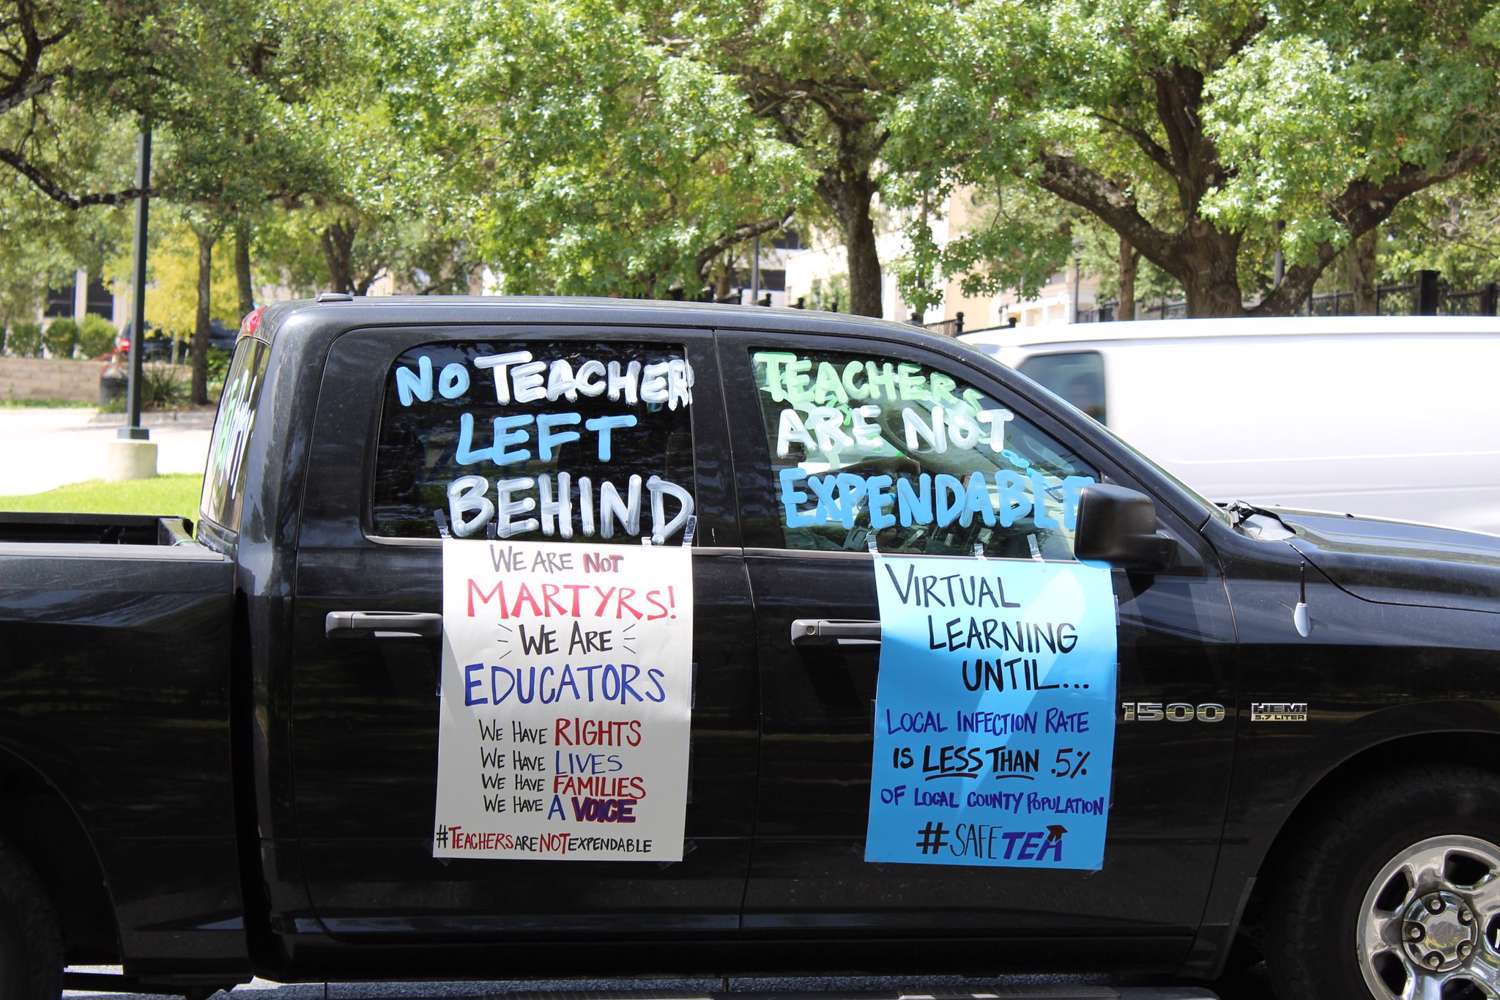 NO TEACHER
LEFT
BEHIND
WE ARE NOT
MARTYRS!
WE ARE
EDUCATORS
WE HAVE RIGHTS
WE HAVE LIVES
WE HAVE FAMILIES
WE HAVE A VOICE
#TEACHERSARENOTEXPENDABLE
TEACHERS
ARE NOT
EXPENDABLE
VIRTUAL
LEARNING
UNTIL...
LOCAL INFECTION RATE
IS LESS THAN .5%
OF LOCAL COUNTY POPULATION
#SAFETEA
1500
HEMI
5.7 LITER